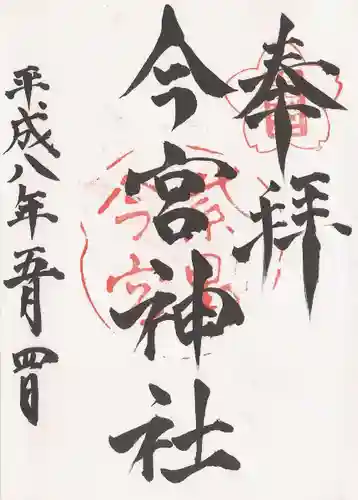 奉拝
今宮神社
平成八年五月四日